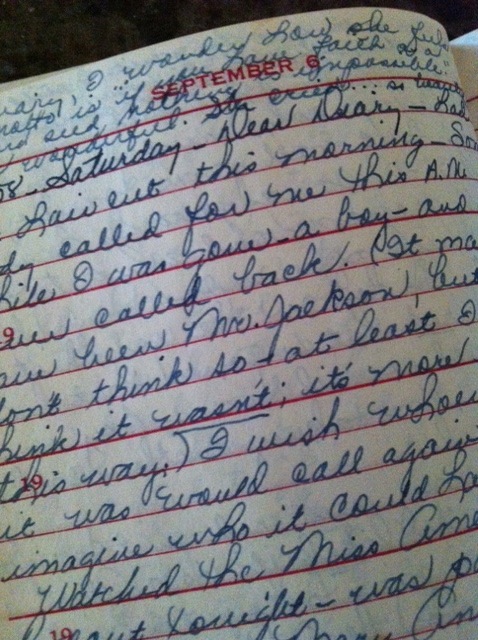 iary, I wonder how she
motto is "if you have faith as a
seed nothing impossible."
wonderful. She cried... so
SEPTEMBER 6
58 - Saturday - Dear Diary - Had
hair cut this morning - So
dy called for me this A.M.
hile I was gone - a boy - and
ver called back. (It ma
ave been Mr. Jackson, but
don't think so - at least I
hink it wasn't; it's more
19
this way.) I wish whoev
it was would call again
imagine who it could ha
Watched the Miss Ame
tonight - was
19